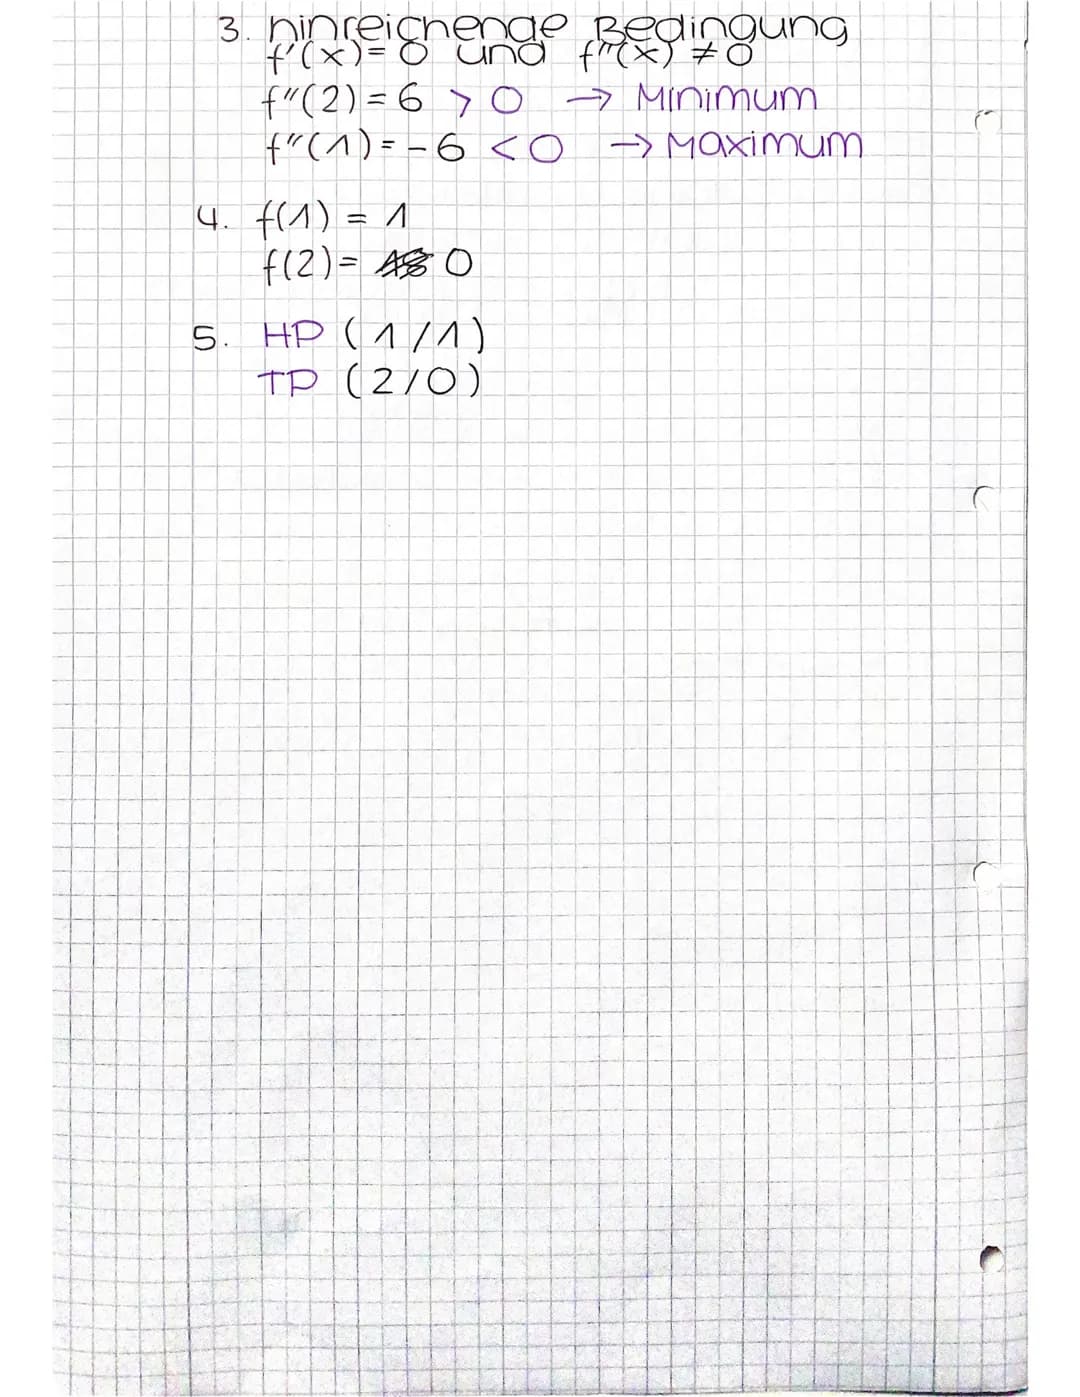 3. hinreichende Bedingung
f'(x)=0 und f"(x) ≠ 0
f"(2) = 6 > 0 → Minimum
f"(1) = -6 < 0 → Maximum
4. f(1) = 1
f(2) = 0
5. HP (1/1)
TP (2/0)